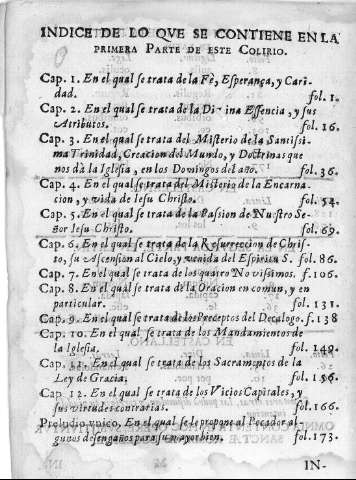 INDICE DE LO QVE SE CONTIENE EN LA
PRIMERA PARTE DE ESTE COLIRIO.
Cap. 1. En el qual se trata de la Fè, Esperança, y Cari-
dad. fol. 1.
Cap. 2. En el qual se trata de la Diuina Essencia, y sus
Atributos. fol. 16.
Cap. 3. En el qual se trata del Misterio de la Santisi-
ma Trinidad, Creacion del Mundo, y Doctrinas que
nos dà la Iglesia, en los Domingos del año. fol. 36.
Cap. 4. En el qual se trata del Misterio de la Encarna-
cion, y vida de Iesu Christo. fol. 54.
Cap. 5. En el qual se trata de la Passion de Nuestro Se-
ñor Iesu Christo. fol. 69.
Cap. 6. En el qual se trata de la Resurreccion de Chris-
to, su Ascension al Cielo, y venida del Espiritu S. fol. 86.
Cap. 7. En el qual se trata de los quatro Novissimos. f. 106.
Cap. 8. En el qual se trata de la Oracion en comun, y en
particular. fol. 131.
Cap. 9. En el qual se trata de los Preceptos del Decalogo. f. 138
Cap. 10. En el qual se trata de los Mandamientos de
la Iglesia. fol. 149.
Cap. 11. En el qual se trata de los Sacramentos de la
Ley de Gracia. fol. 156.
Cap. 12. En el qual se trata de los Vicios Capitales, y
sus virtudes contrarias. fol. 166.
Preludio vnico. En el qual se le propone al Pecador al-
gunos desengaños para su mayor bien. fol. 173.
IN-